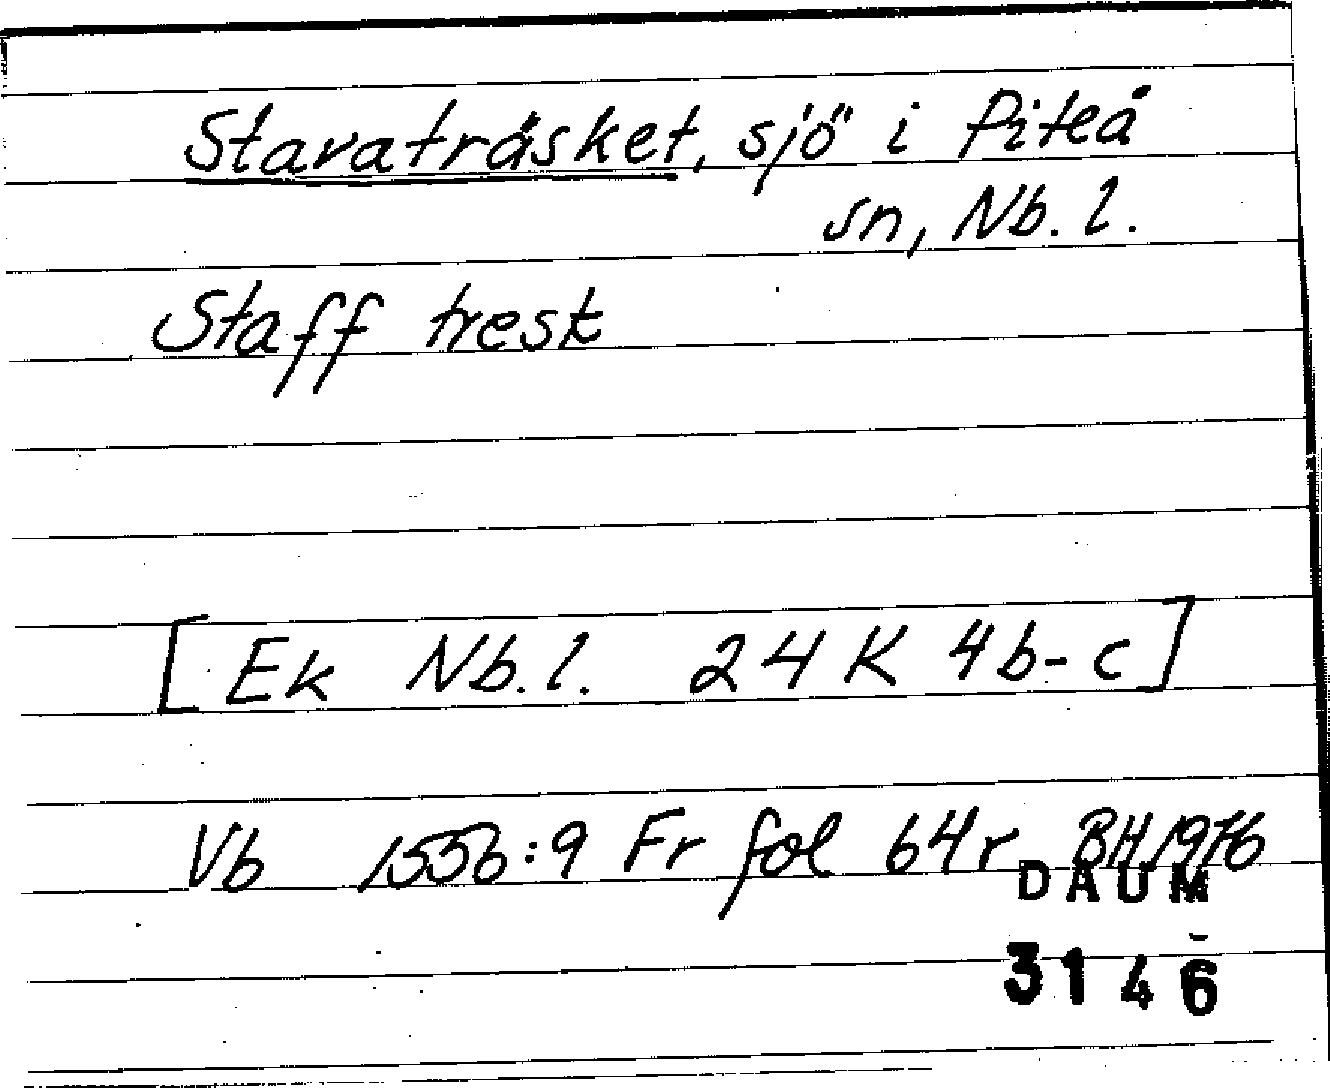 Stavaträsket, sjö i Piteå
sn, Nb. l.
Staff tresk
[Ek Nb. l. 24 K 4 b-c]
Vb 1556:9 Fr fol 64r BH 1976
DAUM
3146